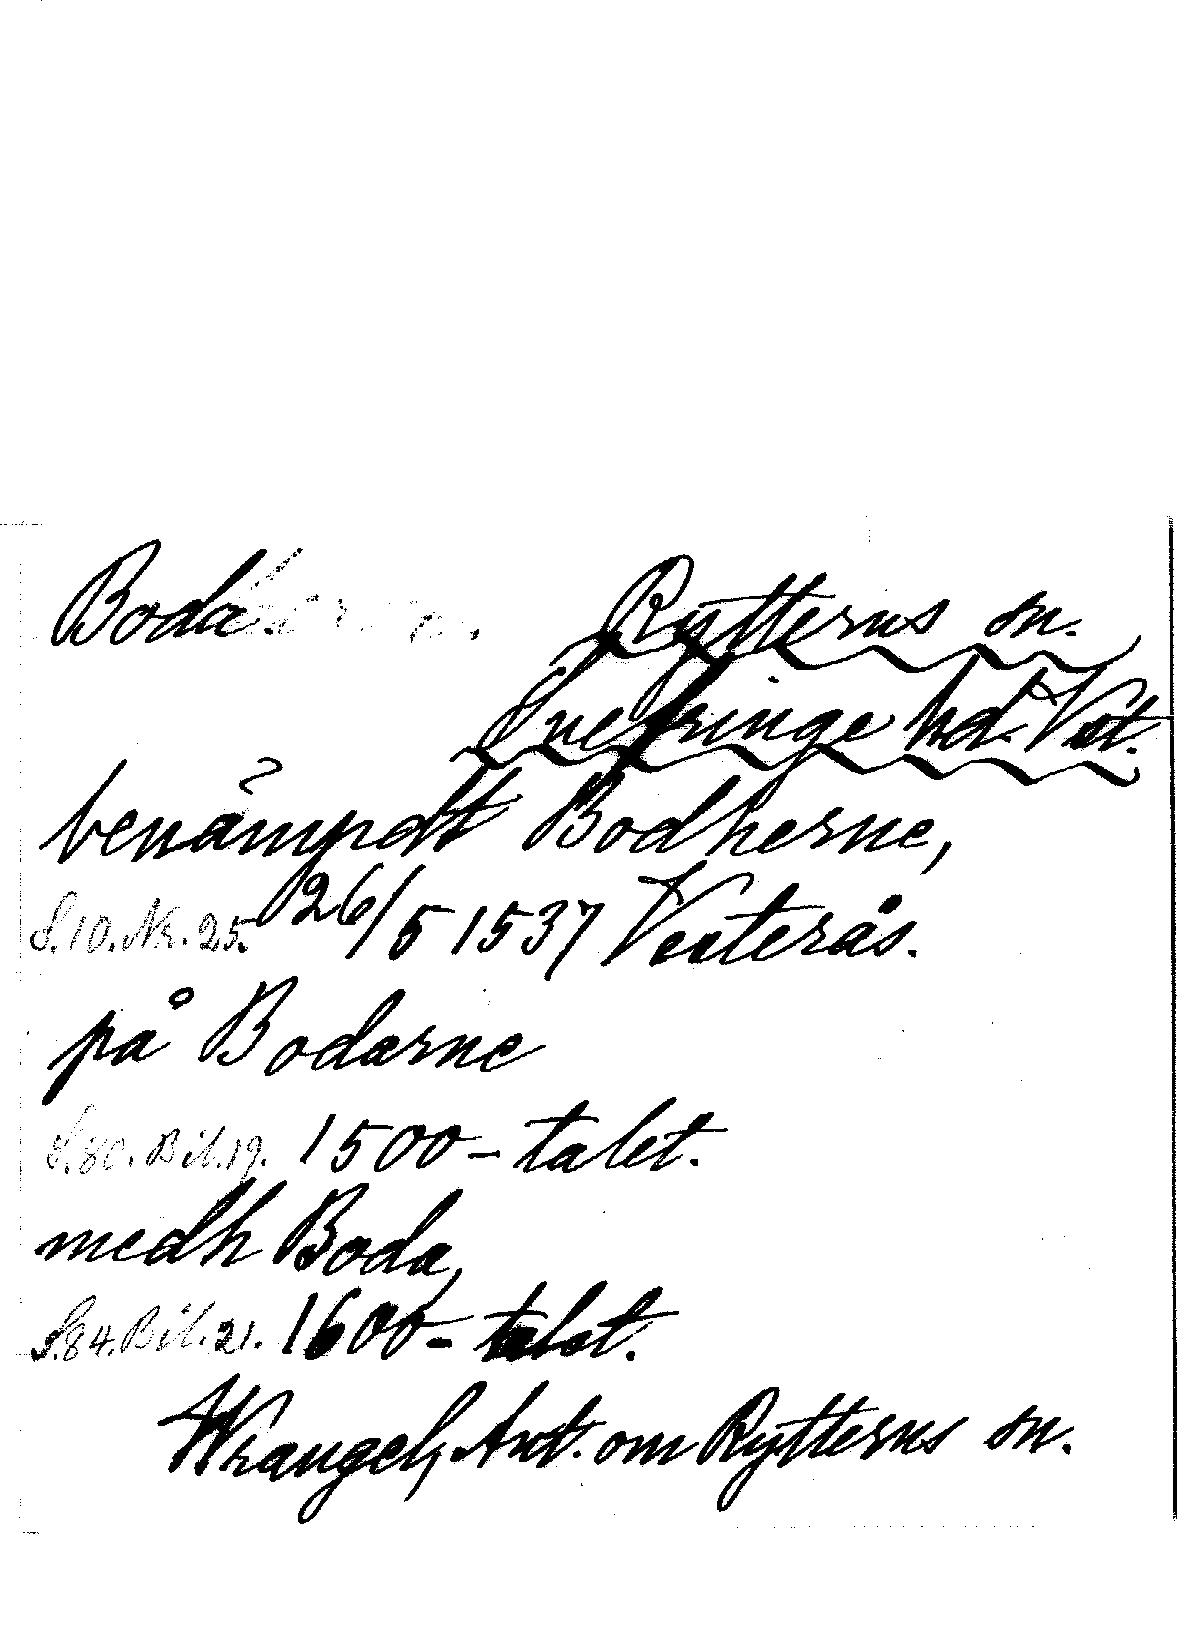 Boda Rytterns sn.
Snefringe hd. Vstl.
benämpdt Bodherne,
S.10. Nr. 25. 26/5 1537 Vesterås.
på Bodarne
S.80. Bil.19. 1500-talet.
medh Boda,
S.84. Bil. 21. 1600-talet.
Wrangel, Ant. om Rytterns sn.